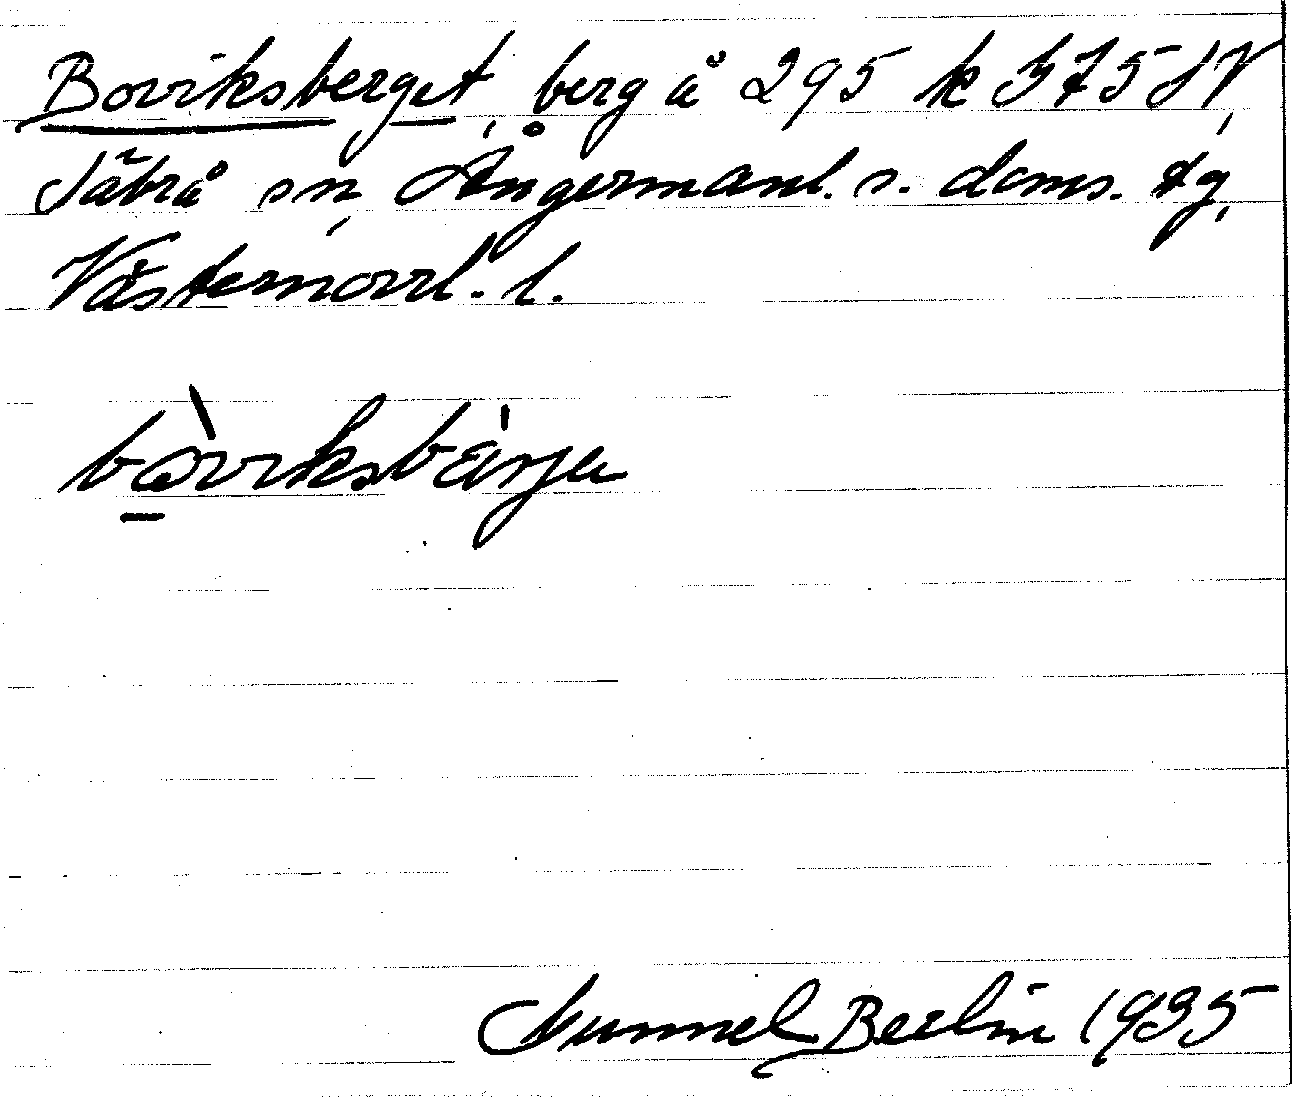 Boviksberget, berg å 295 k 375 SV,
Säbrå sn, Ångermanl. s. doms. tg,
Västernorrl. l.
bòviksbärja
Gunnel Berlin 1935